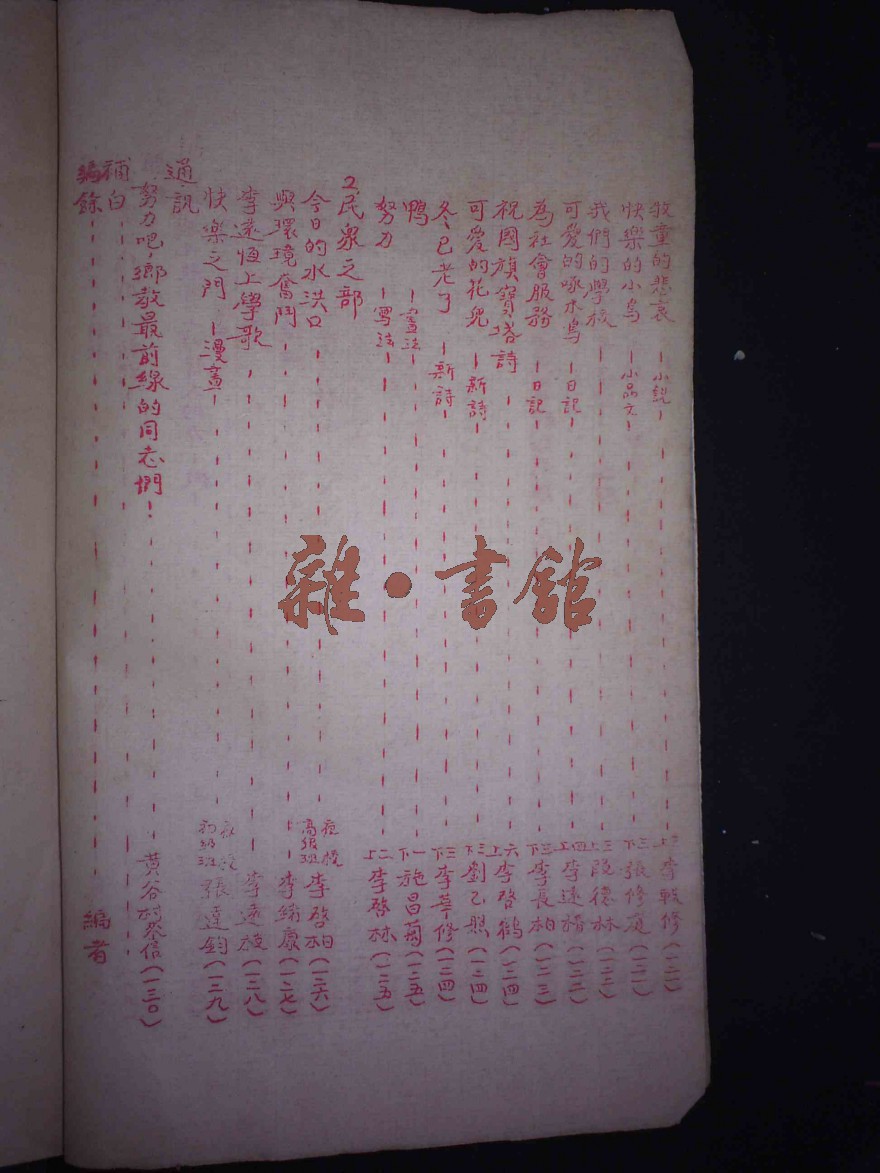 牧童的悲哀 —小說— 上三 李戟修(一二一)
快樂的小鳥 —小品文— 下三 張修庭(一二一)
我們的學校 上三 段德林(一二二)
可愛的啄木鳥 —日記— 上四 李遠椿(一二二)
為社會服務 —日記— 下三 李長柏(一二三)
祝國旗寶塔詩 上六 李啓鶴(一二四)
可愛的花兒 —新詩— 下三 劉乙照(一二四)
冬、已老了 —新詩— 下三 李華修(一二四)
鴨 —畫法— 下一 施昌菊(一二五)
努力 —寫法— 上二 李啓林(一二五)
2.民衆之部
今日的水洪口 夜校高級班 李啓柏(一二六)
與環境奮鬥 李緒康(一二七)
李遠恆上學歌 李遠(一二八)
快樂之門 —漫畫— 夜校初級班 張達鈞(一二九)
通訊
努力吧,鄉教最前線的同志們! 黃谷村來信(一三〇)
補白
編餘 編者
雜·書館